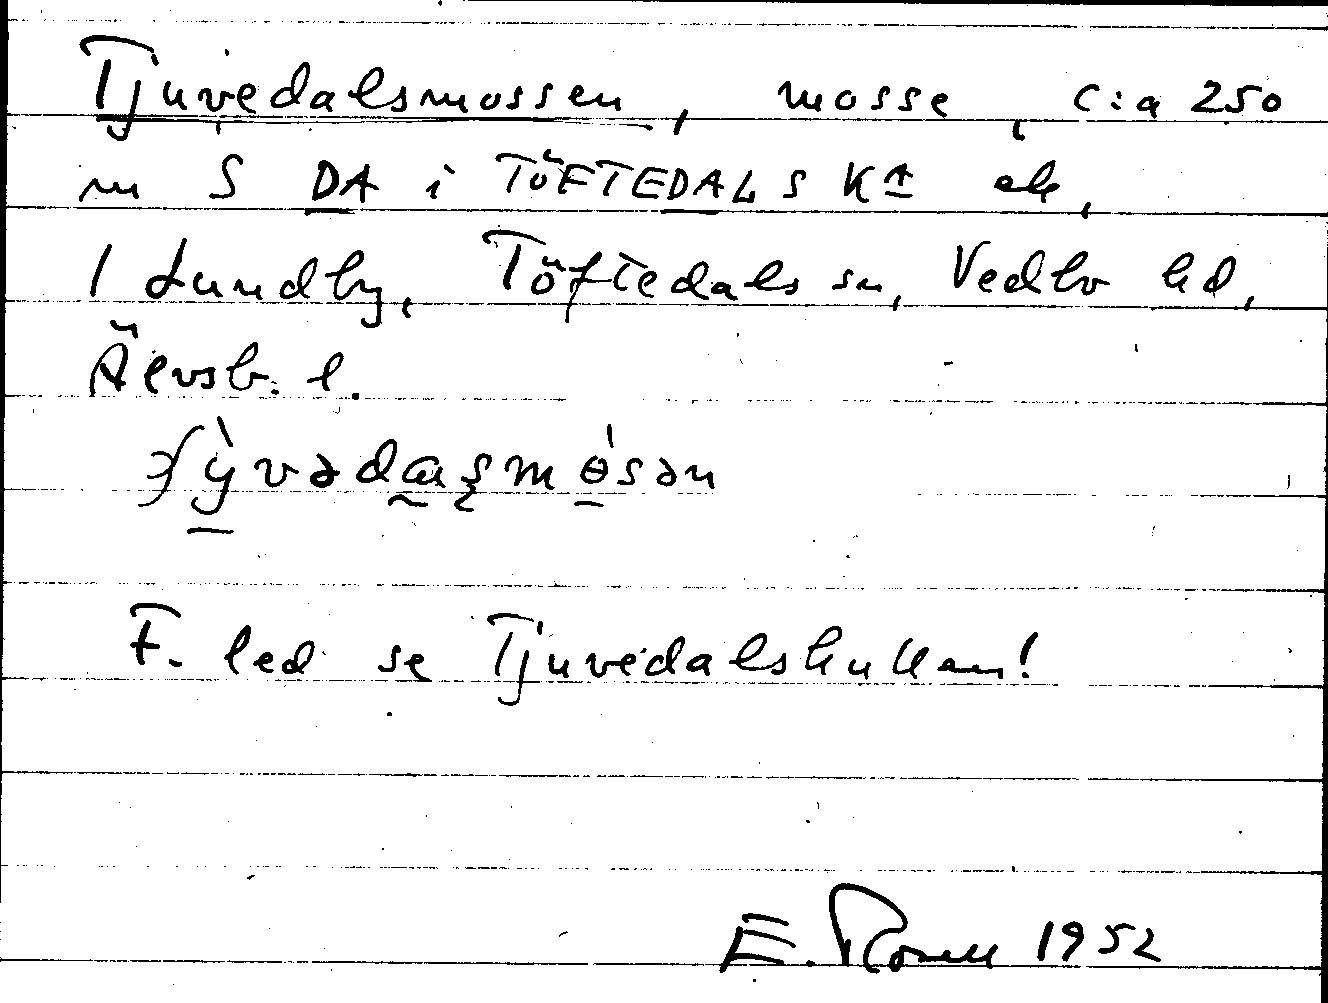 Tjuvedalsmossen, mosse, c:a 250
m S DA i TÖFTEDALS KA ek,
1 Lundby, Töftedals sn, Vedbo hd,
Älvsb. l.
ỳvədaṣmósən
F. led se Tjuvedalskullen!
E. Rosell 1952